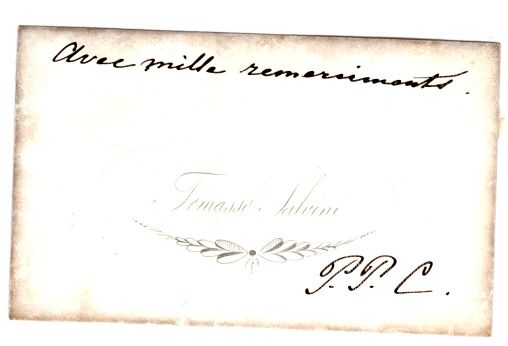 Avec mille remercimonts.
Tomasso Salvini
P.P.C.